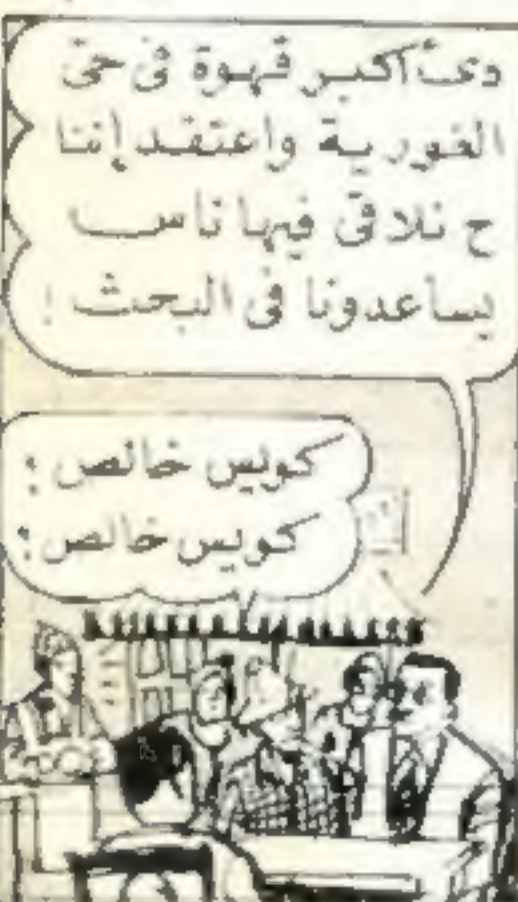 دى أكبر قهوة فى حى
الغورية واعتقد إننا
ح نلاقى فيها ناس
يساعدونا فى البحث !
كويس خالص !
كويس خالص !